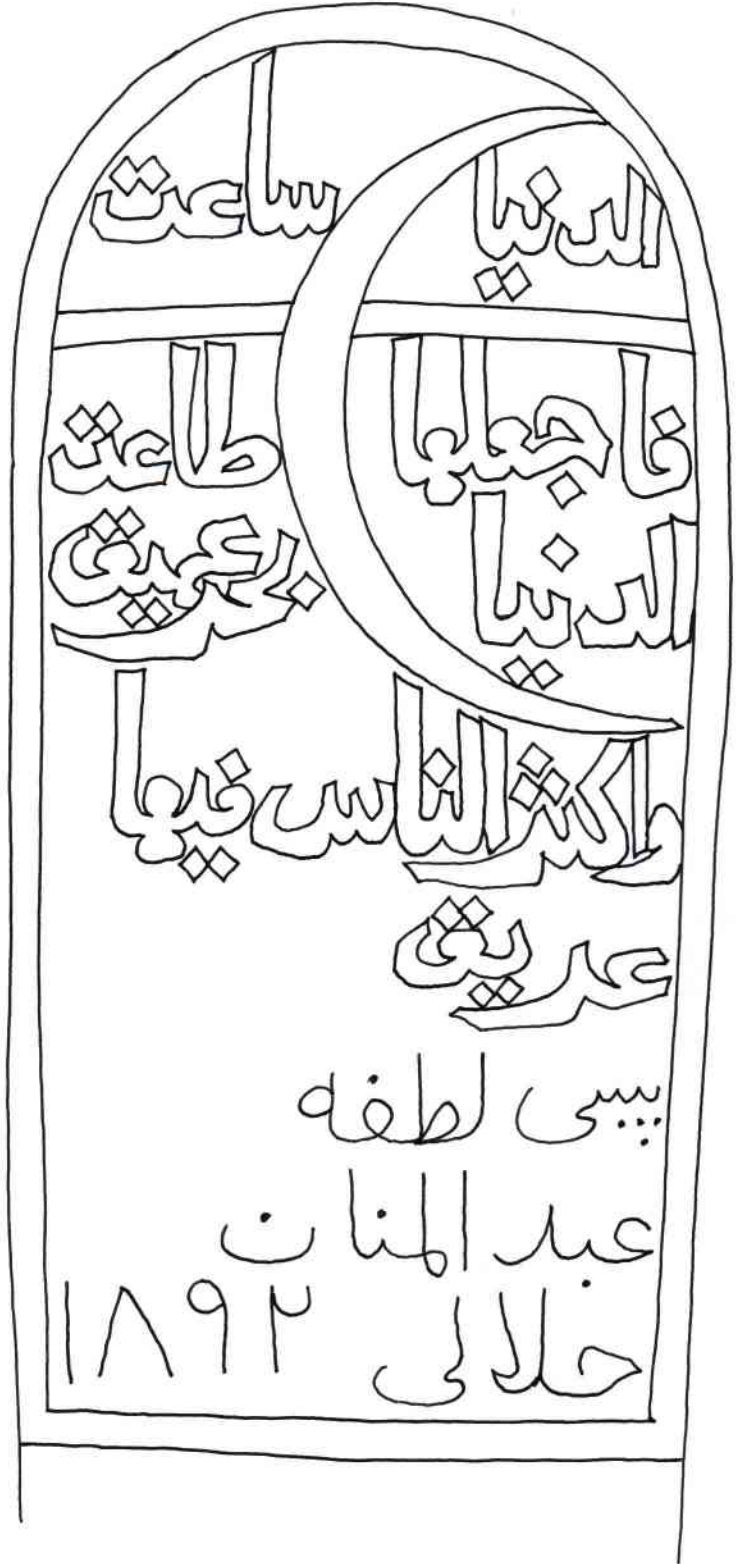 الدنيا ساعت
فاجعلها طاعت
الدنيا بحر عميق
واكثر الناس فيها
عريق
پسی لطفه
عبد المنان
جلالی ١٨٩٢